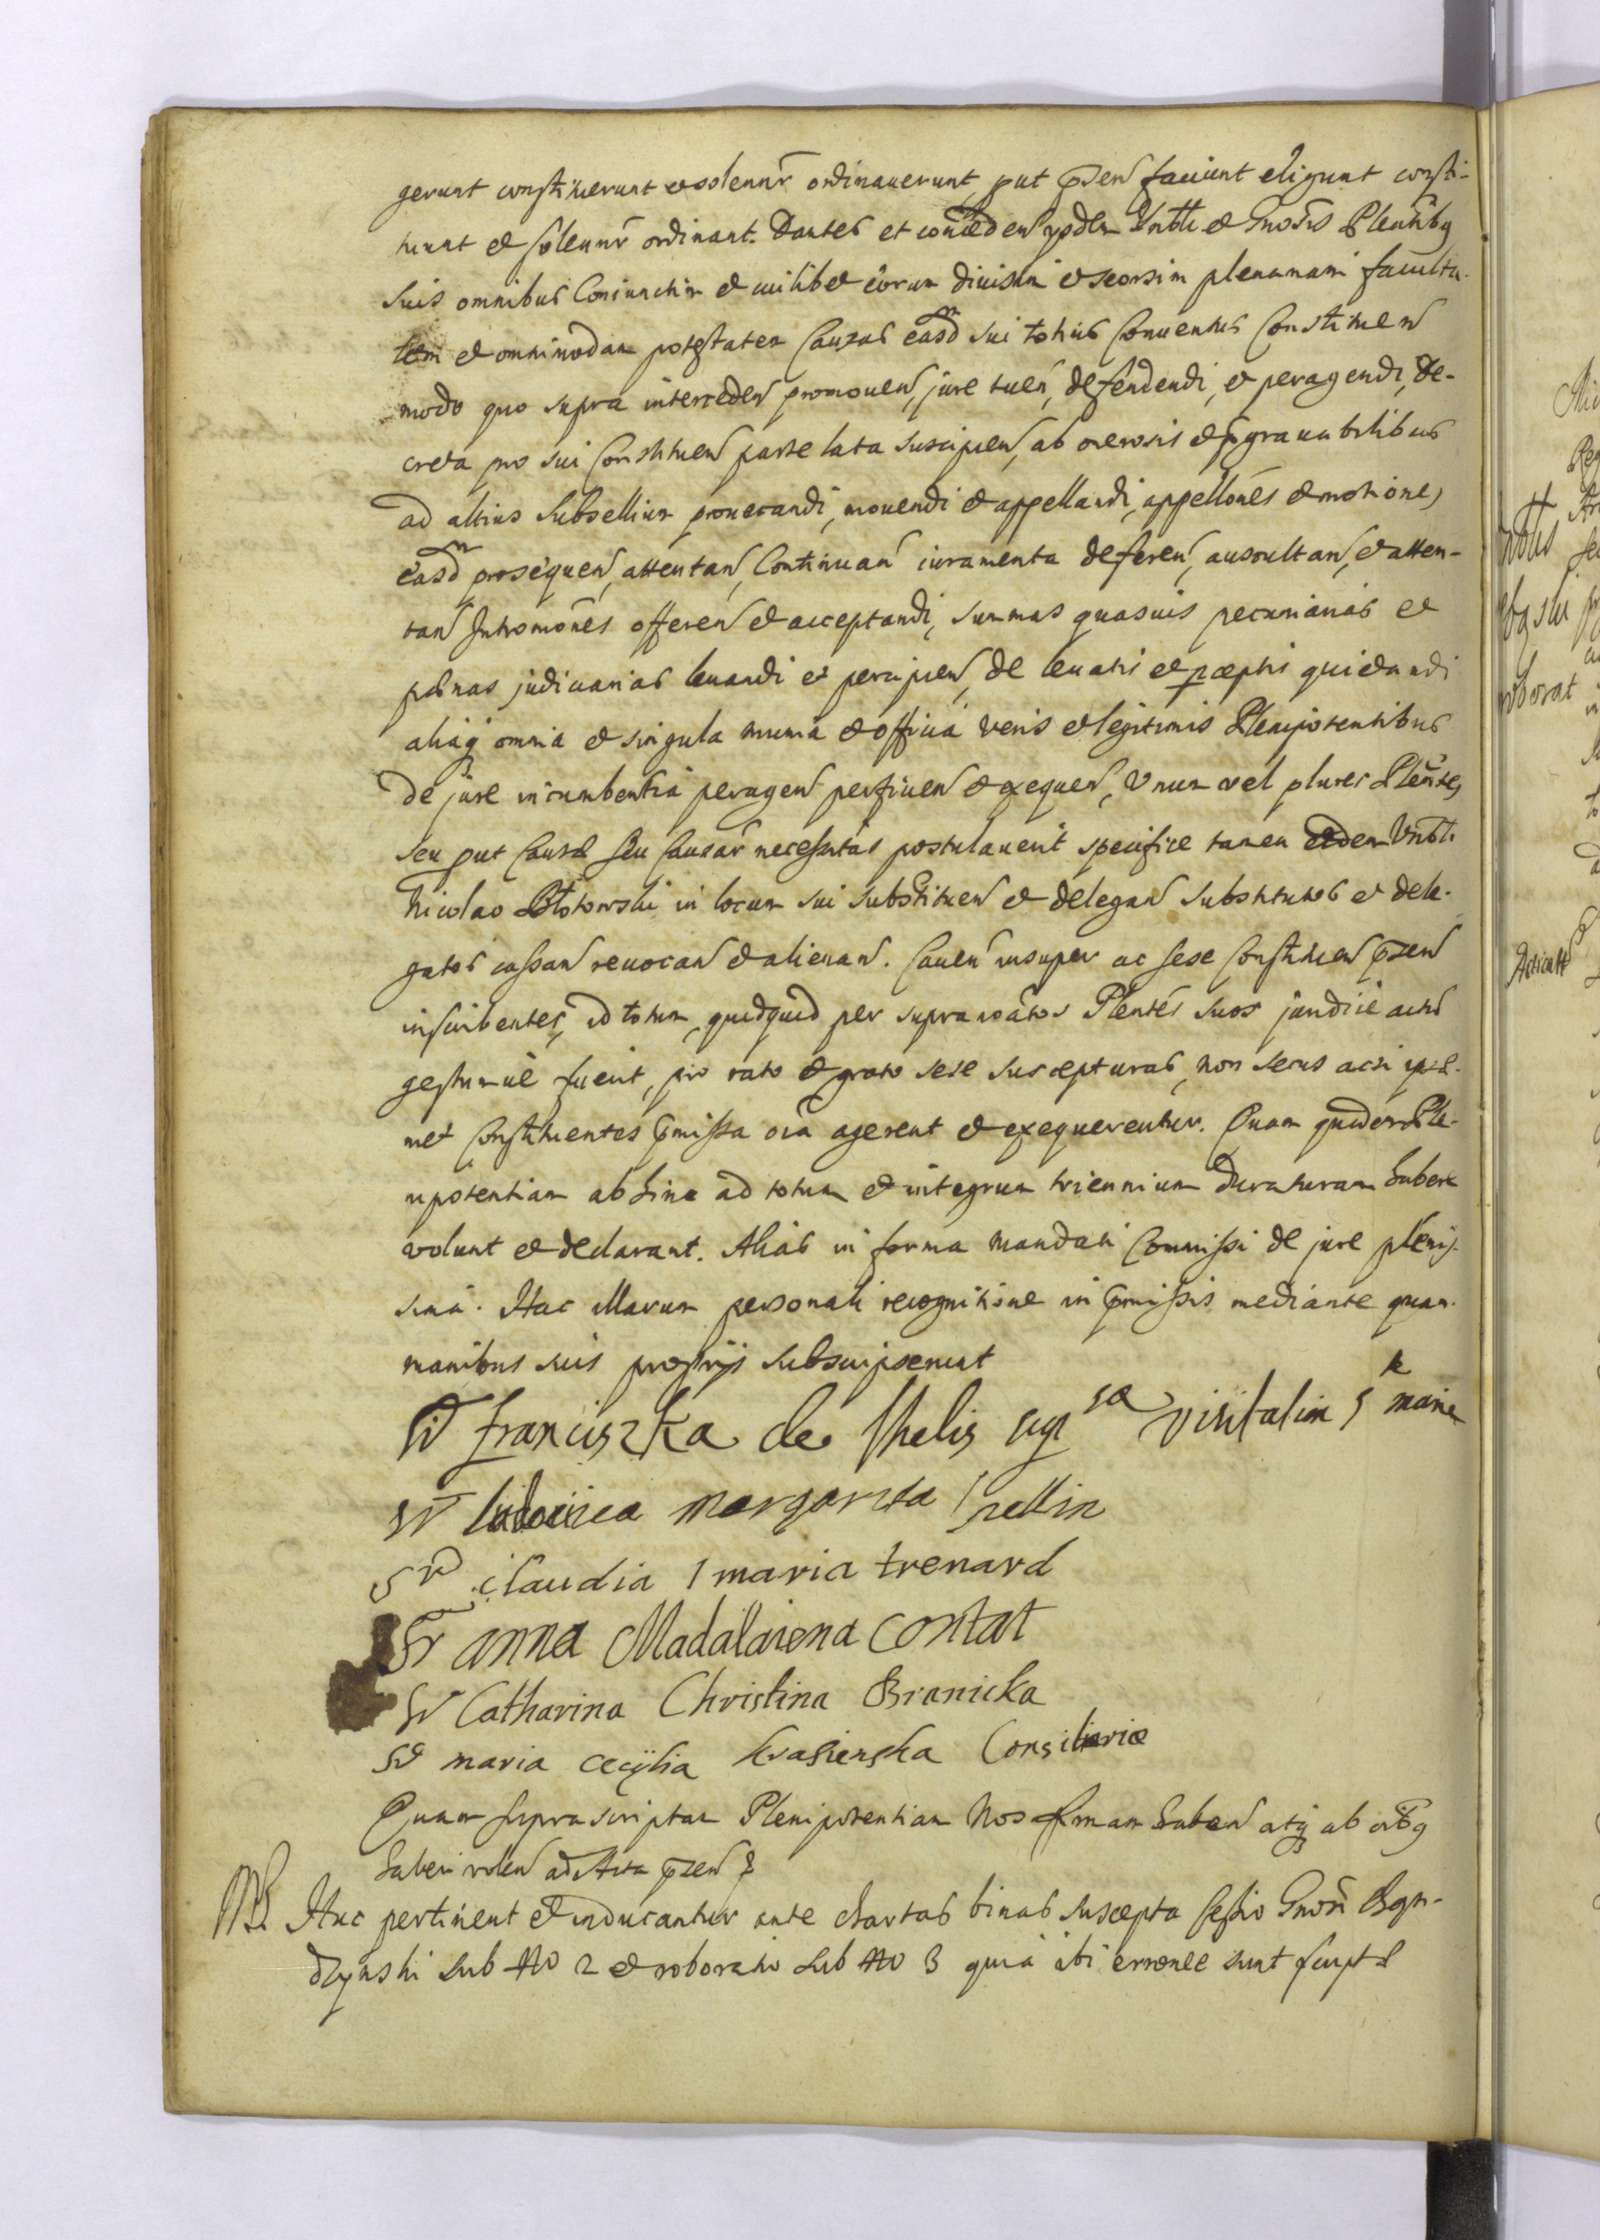 gerunt constituerunt et solennr ordinaverunt put pnsen faciunt eligunt consti-
tuunt et solennr ordinant. Dantes et conceden ysdem Vrbli et Gnosis Plentibq
suis omnibus Coniunctim et cuilibet eorum divisim et seorsim plenariam faculta-
tem et omnimodam potestatem Causas easd sui totius Conventus Constituen
modo quo supra interceden promoven, jure tuen, defendendi, et peragendi, de-
creta pro sui Constituen parte lata suscipien, ab onerosis et pgravabilibus
ad altius Subsellium provocandi, movendi et appellandi, appellones et motiones
easd prosequen, attentan, Continuan iuramenta deferen, auscultan, et atten-
tan Intromones offeren et acceptandi, summas quasvis pecuniarias et
poenas judiciarias levandi et percipien, de levatis et pceptis quietandi
aliaq omnia et singula munia et officia veris et legitimis Plenipotentibus
de jure incumbentia peragen perficien et exequen, Unum vel plures Plentes,
seu put Causae seu Causar necessitas postulaverit specifice tamen eidem Vrbli
Nicolao in locum sui substituen et delegan substitutos et dele-
gatos cassan revocan et alienan. Caven insuper ac sese Constituen pnsen
inscribentes, id totum, quidquid per supranoatos Plentes suos juridice actu
gestumve fuerit, pro rato et grato sese suscepturas, non secus acsi ipse-
met Constituentes pmissa oia agerent et exequerentur. Quam quidem Ple-
nipotentiam ab hinc ad totum et integrum triennium duraturam habere
volunt et declarant. Alias in forma mandati Commissi de jure plenis-
sima. Hac illarum personali recognitione in pmissis mediante quam
manibus suis proprijs subscripserunt
Sr Franciszka de Thelis sup sa visitatin s te marie
Sr ludovica margarita
Sr claudia maria trenard
Sr anna Madalaiena contat
Sr Catharina Christina Branicka
Sr maria cecÿlia krasienska Consiliariae
Quam suprascriptam Plenipotentiam Nos firmam haben atq ab oibq
haberi volen ad Acta pnsen
NB Huc pertinent et inducantur ante chartas binas suscepta sessio Gnosi
dzynski sub No 2 et roboratio sub No 3 quia ibi erronee sunt scriptae